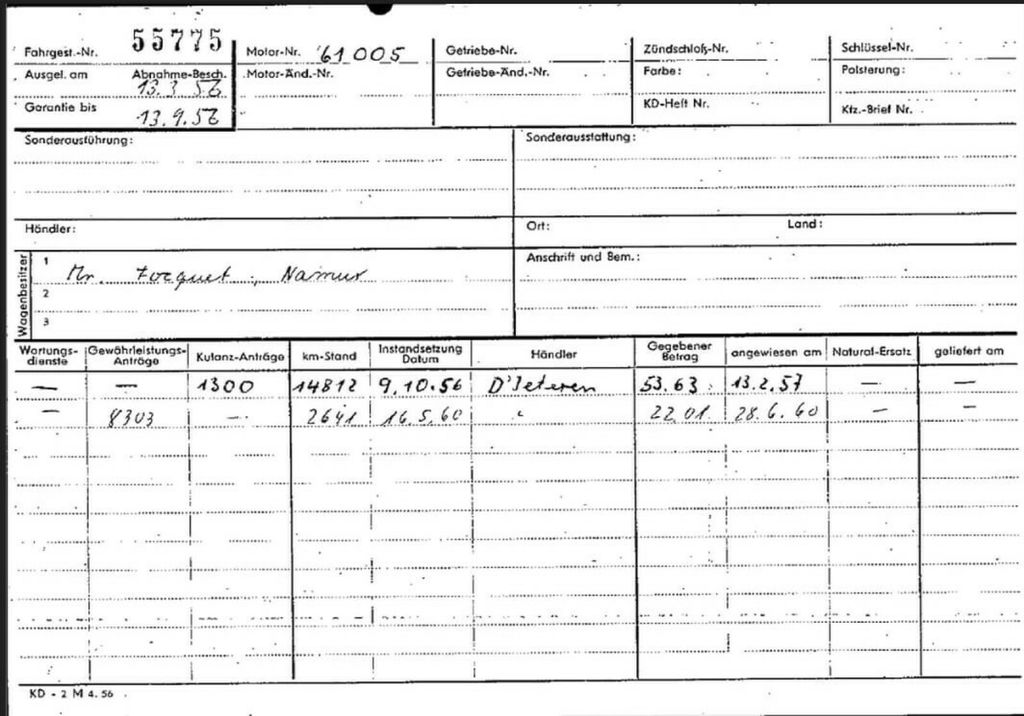 Fahrgest.-Nr. 55775 Motor-Nr. 61005 Getriebe-Nr. Zündschloß-Nr. Schlüssel-Nr.
Ausgel. am Abnahme-Besch. Motor-Änd.-Nr. Getriebe-Änd.-Nr. Farbe: Polsterung:
13.3.56
Garantie bis 13.9.56 KD-Heft Nr. Kfz.-Brief Nr.
Sonderausführung: Sonderausstattung:
Händler: Ort: Land:
Wagenbesitzer
1 Mr. Namur Anschrift und Bem.:
2
3
Wartungs-dienste Gewährleistungs-Anträge Kulanz-Anträge km-Stand Instandsetzung Datum Händler Gegebener Betrag angewiesen am Natural-Ersatz geliefert am
— — 1300 14812 9.10.56 D'Ieteren 53.63 13.2.57 — —
— 8303 — 2641 16.5.60 " 22.01 28.6.60 — —
KD - 2 M 4. 56